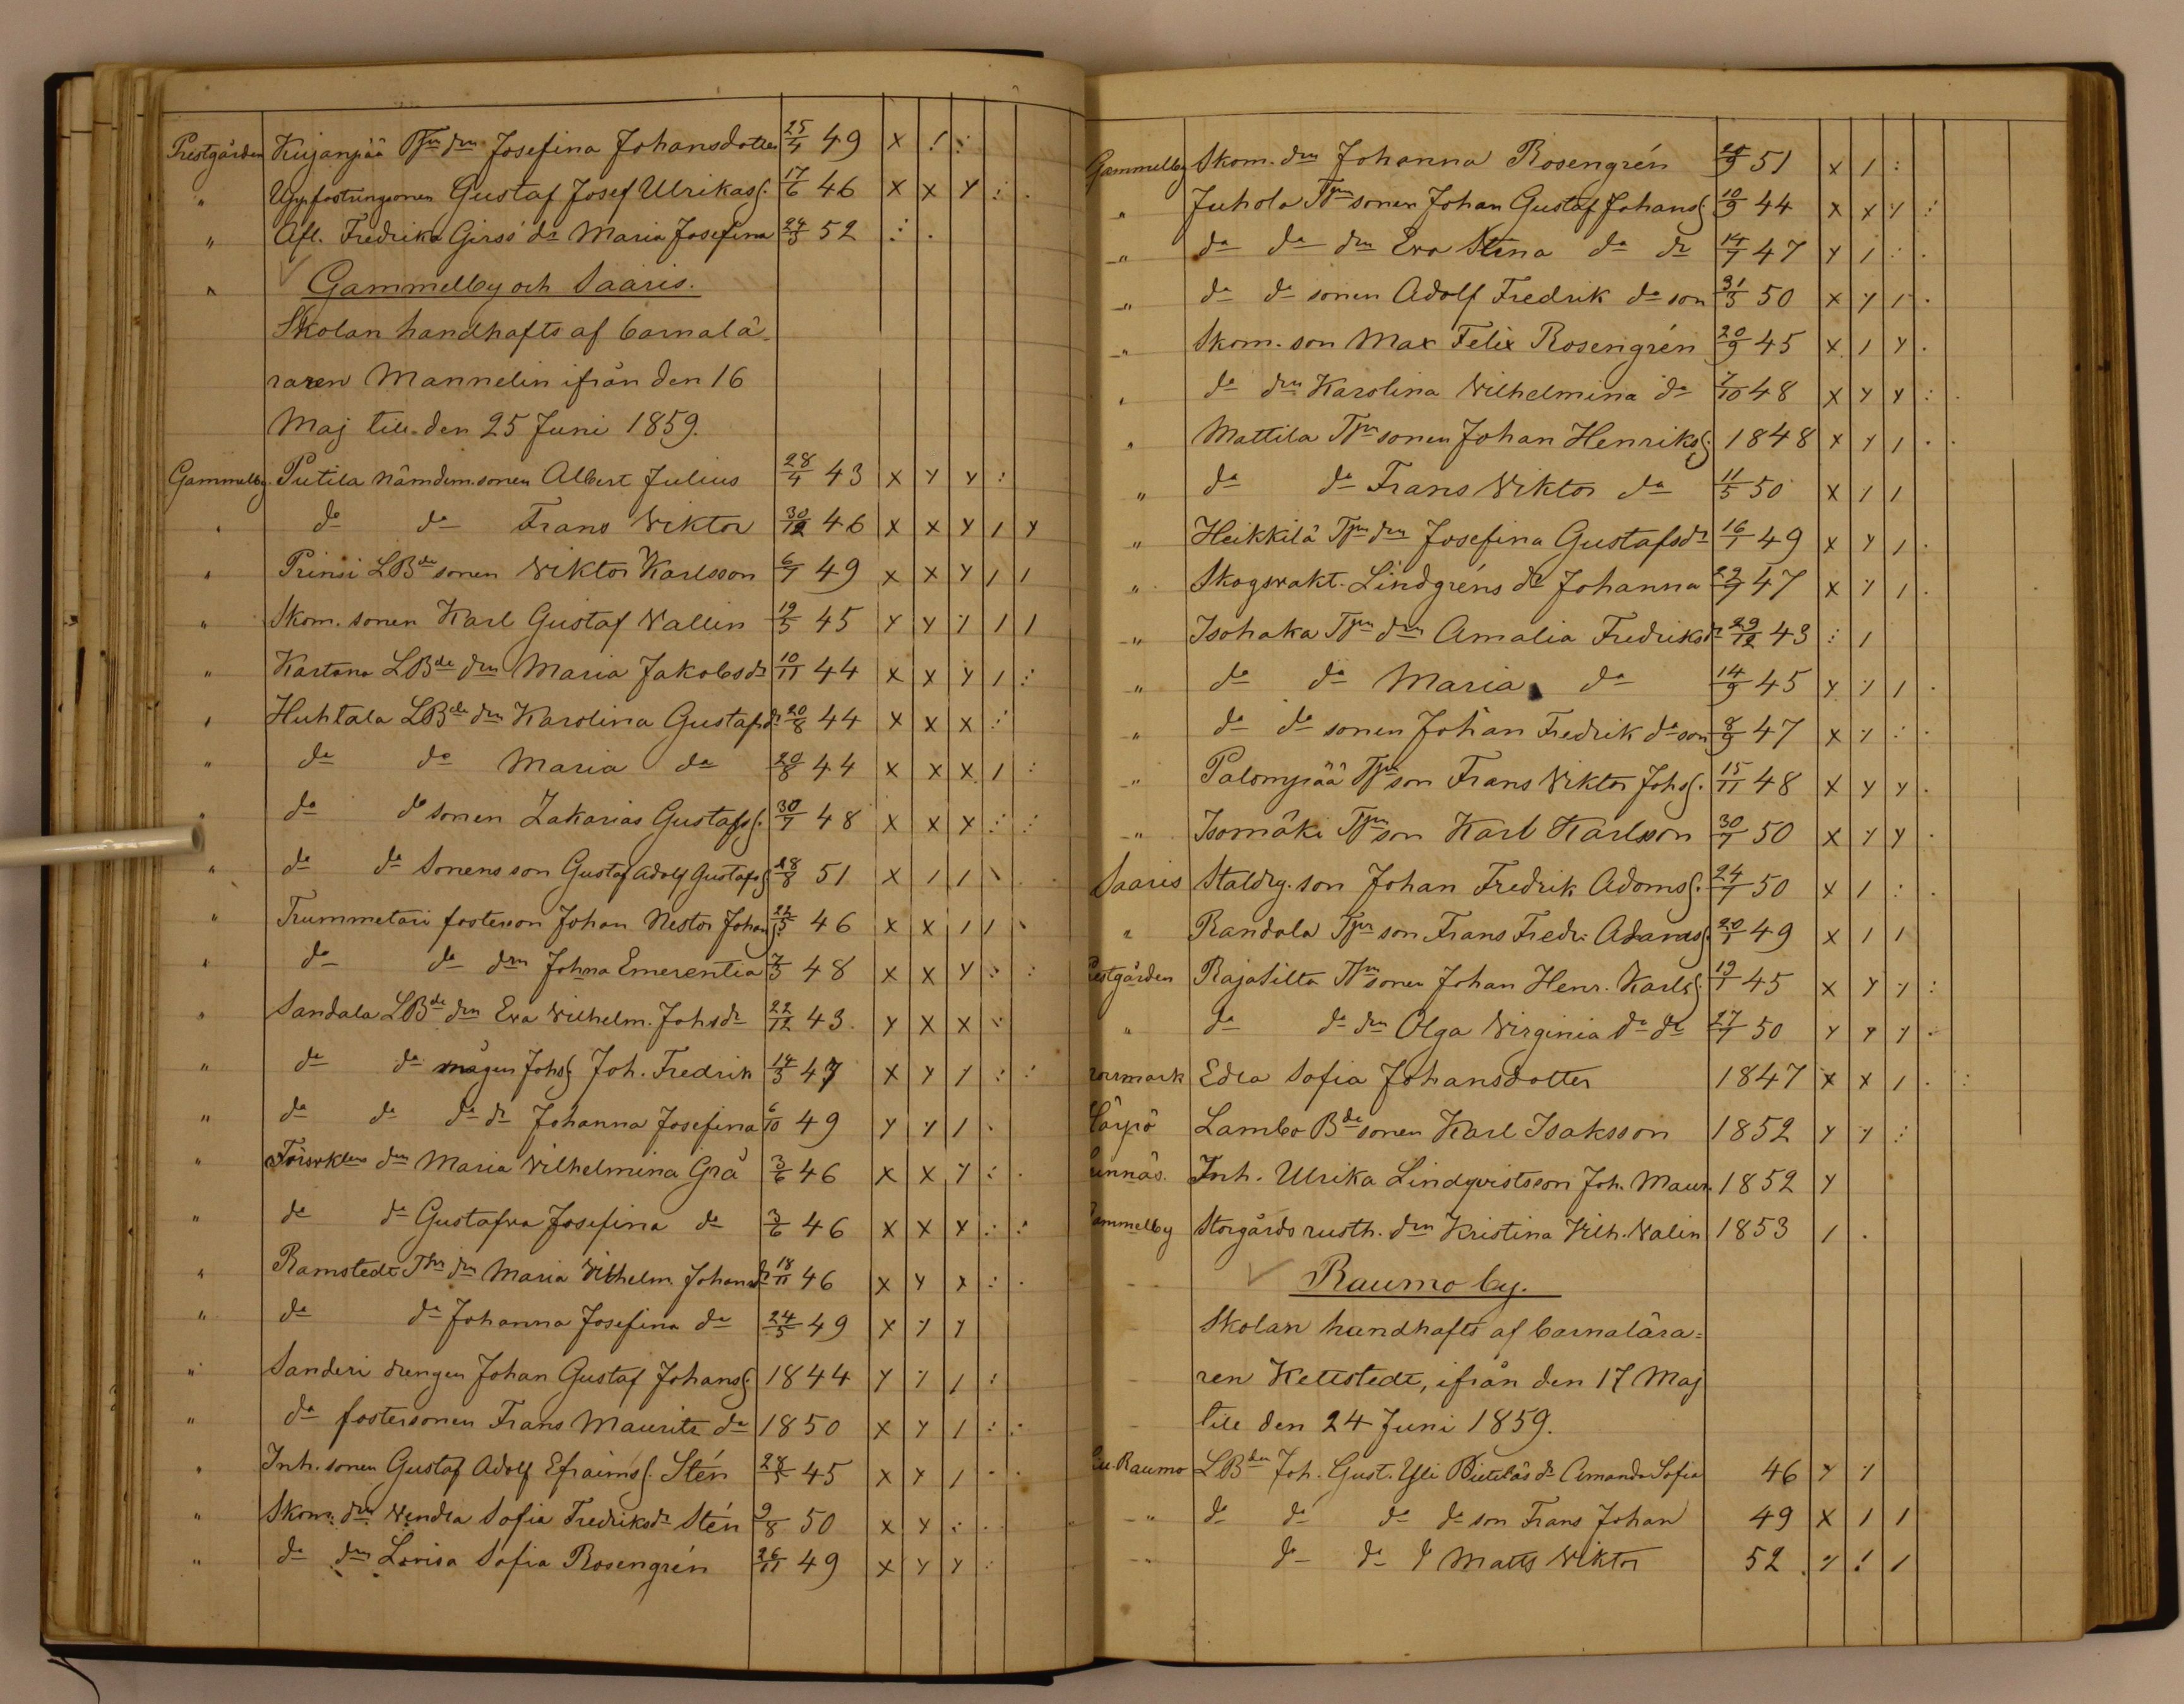 Prestgården Kujanpää Tprn drn Josefina Johansdotter 25/4 49 x ! :
" Uppfostringsonen Gustaf Josef Ulrikas. 17/6 46 x x y : .
" Afl. Fredrika Girss' dr Maria Josefina 24/3 52 : .
" Gammelby och Saaris.
Skolan handhafts af barnalä-
raren Mannelin ifrån den 16
Maj till den 25 Juni 1859.
Gammelby Putila nämdem. sonen Albert Julius 28/4 43 x y y :
" do do Frans Wiktor 30/12 46 x x y / y
" Prinsi LBde sonen Wiktor Karlsson 6/7 49 x x y / /
" Skom. sonen Karl Gustaf Wallin 19/5 45 y y y / /
" Kartano LBde drn Maria Jakobsdr 10/11 44 x x y / :
" Huhtala LBde drn Karolina Gustafsdr 20/8 44 x x x :
" do do Maria do 20/8 44 x x x / :
" do do sonen Zakarias Gustafs. 30/7 48 x x x : :
" do do Sonens son Gustaf Adolf Gustafs. 18/8 51 x / / \
" Trummetari fosterson Johan Nestor Johans. 22/5 46 x x / / \
" do do drn Johna Emerentia 7/3 48 x x y : :
" Sandala LBde drn Eva Wilhelm. Johsdr 22/12 43 y x x :
" do do mågen Johs. Joh. Fredrik 14/3 47 x y / : :
" do do do dr Johanna Josefina 6/10 49 y y / \
" Törswklens drn Maria Wilhelmina Grå 3/6 46 x x y : .
" do do Gustafva Josefina do 3/6 46 x x x : :
" Ramstedt Tprn drn Maria Wilhelm. Johansdr 18/11 46 x y x : .
" do do Johanna Josefina do 24/5 49 x y y
" Sanderi drengen Johan Gustaf Johans. 1844 y y / :
" do fostersonen Frans Maurits do 1850 x y / : :
" Inh. sonen Gustaf Adolf Efraims. Stén 28/5 45 x y / . .
" Skom. drn Wendla Sofia Fredriksdr Stén 9/8 50 x y : .
" do drn Lovisa Sofia Rosengrén 26/11 49 x y y :
Gammelby Skom. drn Johanna Rosengrén 51 x / :
" Juhola Tprn sonen Johan Gustaf Johans. 10/9 44 x x y :
" do do drn Eva Stina do dr 14/7 47 y / : .
" do do sonen Adolf Fredrik do son 31/3 50 x y / .
" Skom. son Max Felix Rosengrén 20/9 45 x / y .
" do drn Karolina Wilhelmina do 7/10 48 x y y : .
" Mattila Tprn sonen Johan Henriks. 1848 x y / . .
" do do Frans Wiktor do 11/5 50 x / /
" Heikkilä Tprn drn Josefina Gustafsdr 16/1 49 x y / .
" Skogsvakt. Lindgréns dr Johanna 29/7 47 x y / .
" Isohaka Tprn drn Amalia Fredriksdr 29/12 43 : /
" do do Maria do 14/9 45 y y / .
" do do sonen Johan Fredrik do son 8/9 47 x y : .
" Palompää Tprn son Frans Wiktor Johs. 15/11 48 x y y .
" Isomäki Tprn son Karl Karlsson 30/7 50 x y y .
Saaris Staldrg. son Johan Fredrik Adams. 24/7 50 x / : .
" Randala Tprn son Frans Fredr. Adams. 20/1 49 x / /
estgården Rajasilta Tprn sonen Johan Henr. Karls. 19/1 45 x y y :
" do do drn Olga Wirginia do dr 27/7 50 y y y .
ormark Edla Sofia Johansdotter 1847 x x / . :
Lambo Bde sonen Karl Isaksson 1852 y y :
unnäs. Inh. Ulrika Lindqvists son Joh. Maur. 1852 y
ammelby Storgårds rusth. drn Kristina Wilh. Walin 1853 / .
Raumo by.
Skolan handhafts af barnalära=
ren Kettstedt, ifrån den 17 Maj
till den 24 Juni 1859.
Raumo LBden Joh. Gust. Yli Pietiläs dr Amanda Sofia 46 y y
" do do do do son Frans Johan 49 x / /
" do do do Matts Wiktor 52 y ! /